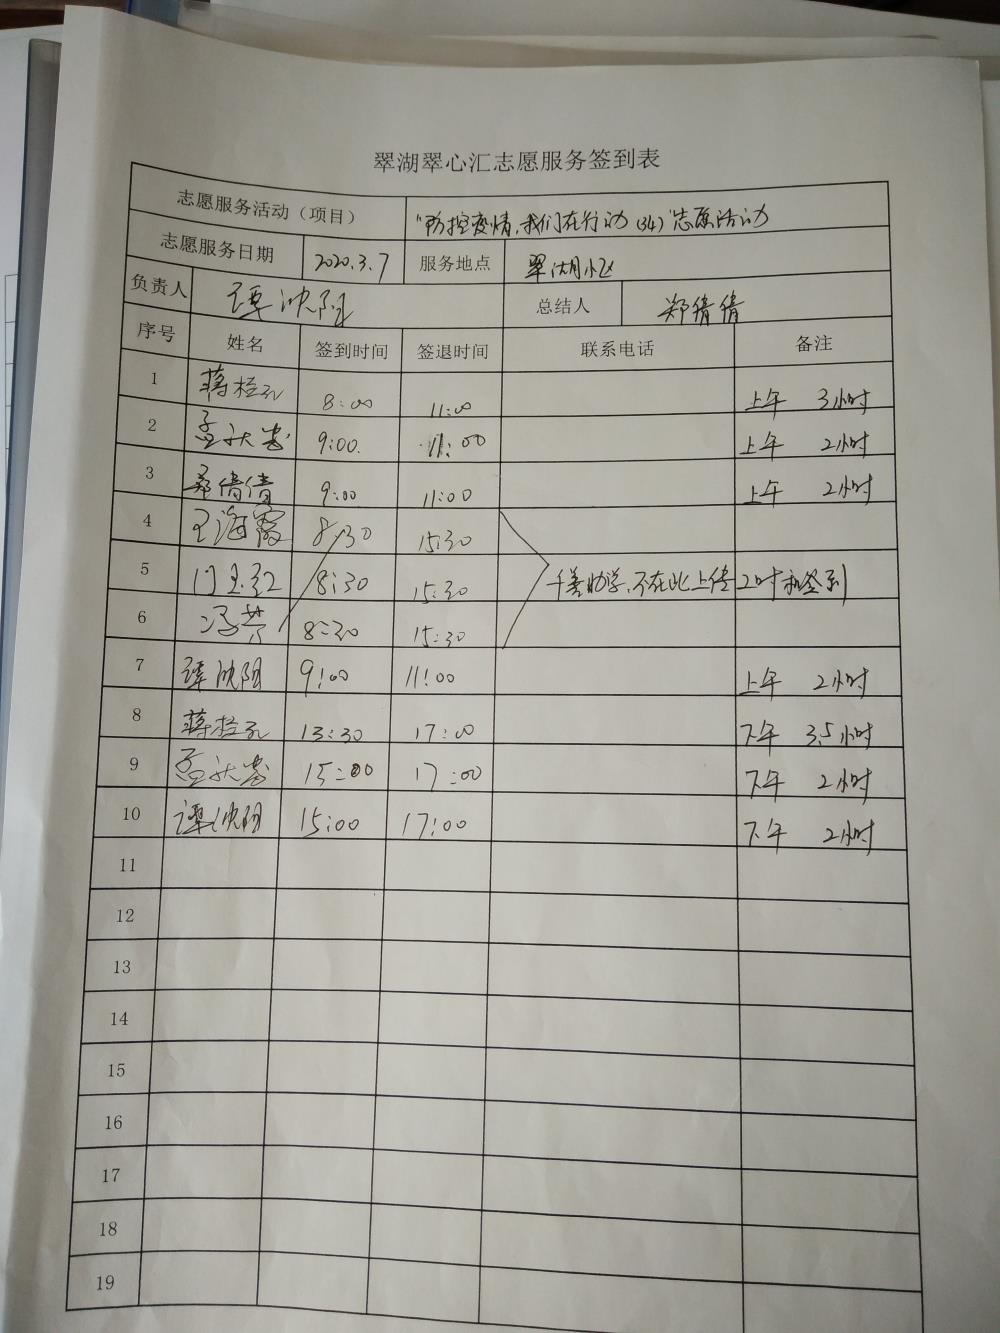 翠湖翠心汇志愿服务签到表
志愿服务活动（项目） “防控疫情,我们在行动(34)”志愿活动
志愿服务日期 2020.3.7 服务地点 翠湖小区
负责人 谭沈阳 总结人 郑倩倩
序号 姓名 签到时间 签退时间 联系电话 备注
1 8:00 11:00 上午 3小时
2 9:00 11:00 上午 2小时
3 郑倩倩 9:00 11:00 上午 2小时
4 王海霞 8:30 15:30
5 闫玉红 8:30 15:30 千善助学,不在此上传工时和签到
6 冯芳 8:30 15:30
7 谭沈阳 9:00 11:00 上午 2小时
8 13:30 17:00 下午 3.5小时
9 15:00 17:00 下午 2小时
10 谭沈阳 15:00 17:00 下午 2小时
11
12
13
14
15
16
17
18
19